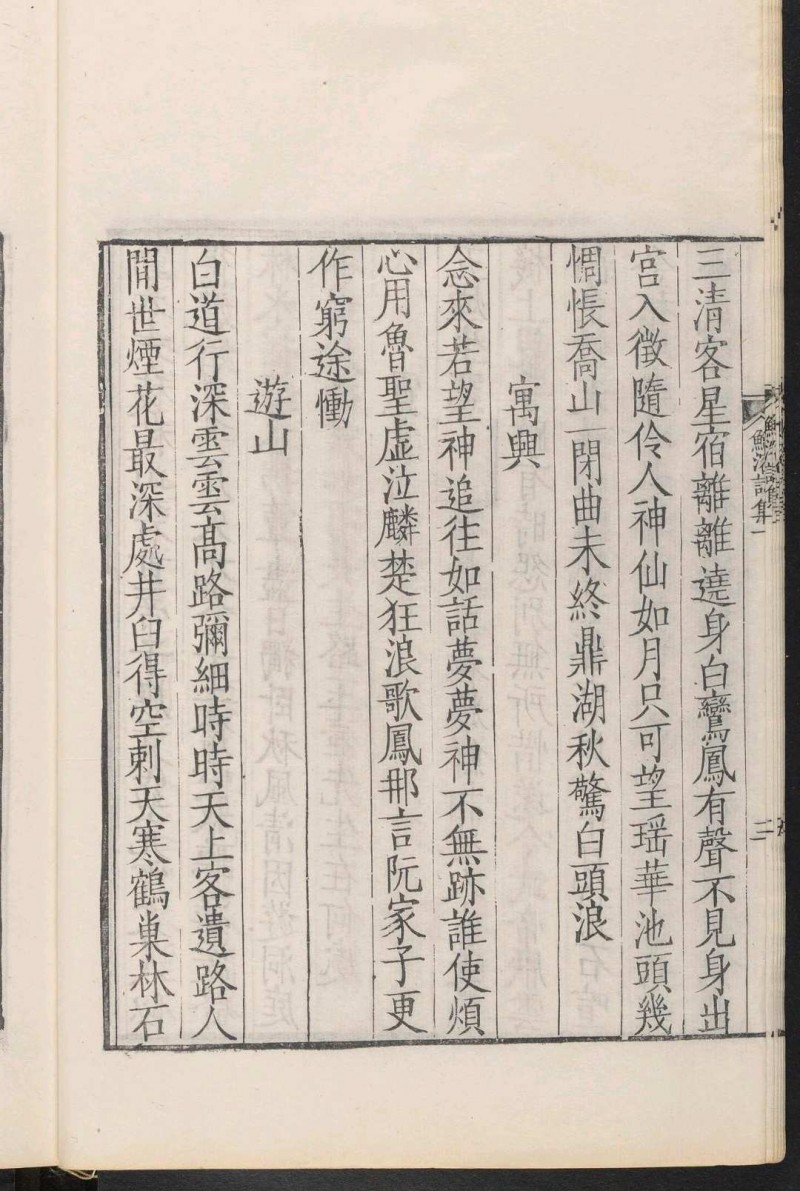 三清客星宿離離遶身白鸞鳳有聲不見身出
宮入徵隨伶人神仙如月只可望瑶華池頭幾
惆悵喬山一閉曲未終鼎湖秋驚白頭浪
寓興
念來若望神追往如話夢夢神不無跡誰使煩
心用魯聖虛泣麟楚狂浪歌鳳那言阮家子更
作窮途慟
遊山
白道行深雲雲高路彌細時時天上客遺路人
間世煙花最深處井臼得空刺天寒鶴巢林石
鮑溶詩集一
二